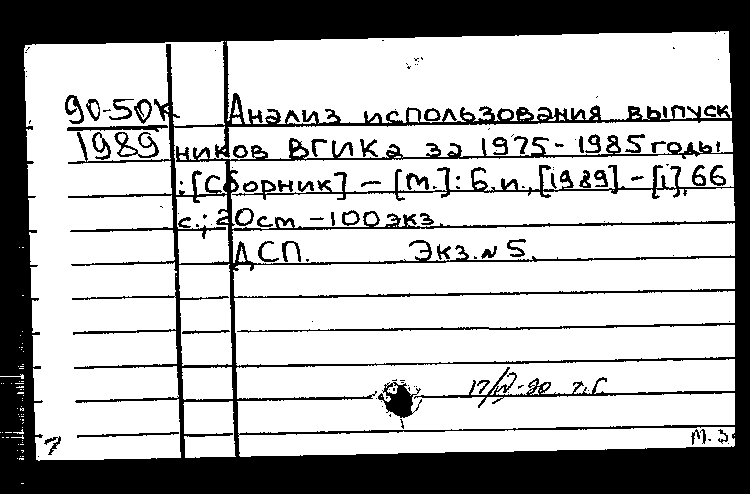 90-50К Анализ использования выпуск
1989 ников ВГИКа за 1975-1985 годы
: [Сборник] - [М.] : Б.и., [1989]. - [1], 66
с.; 20 ст. - 100 экз.
ДСП. Экз. № 5.
-90 т.Г.
М. З